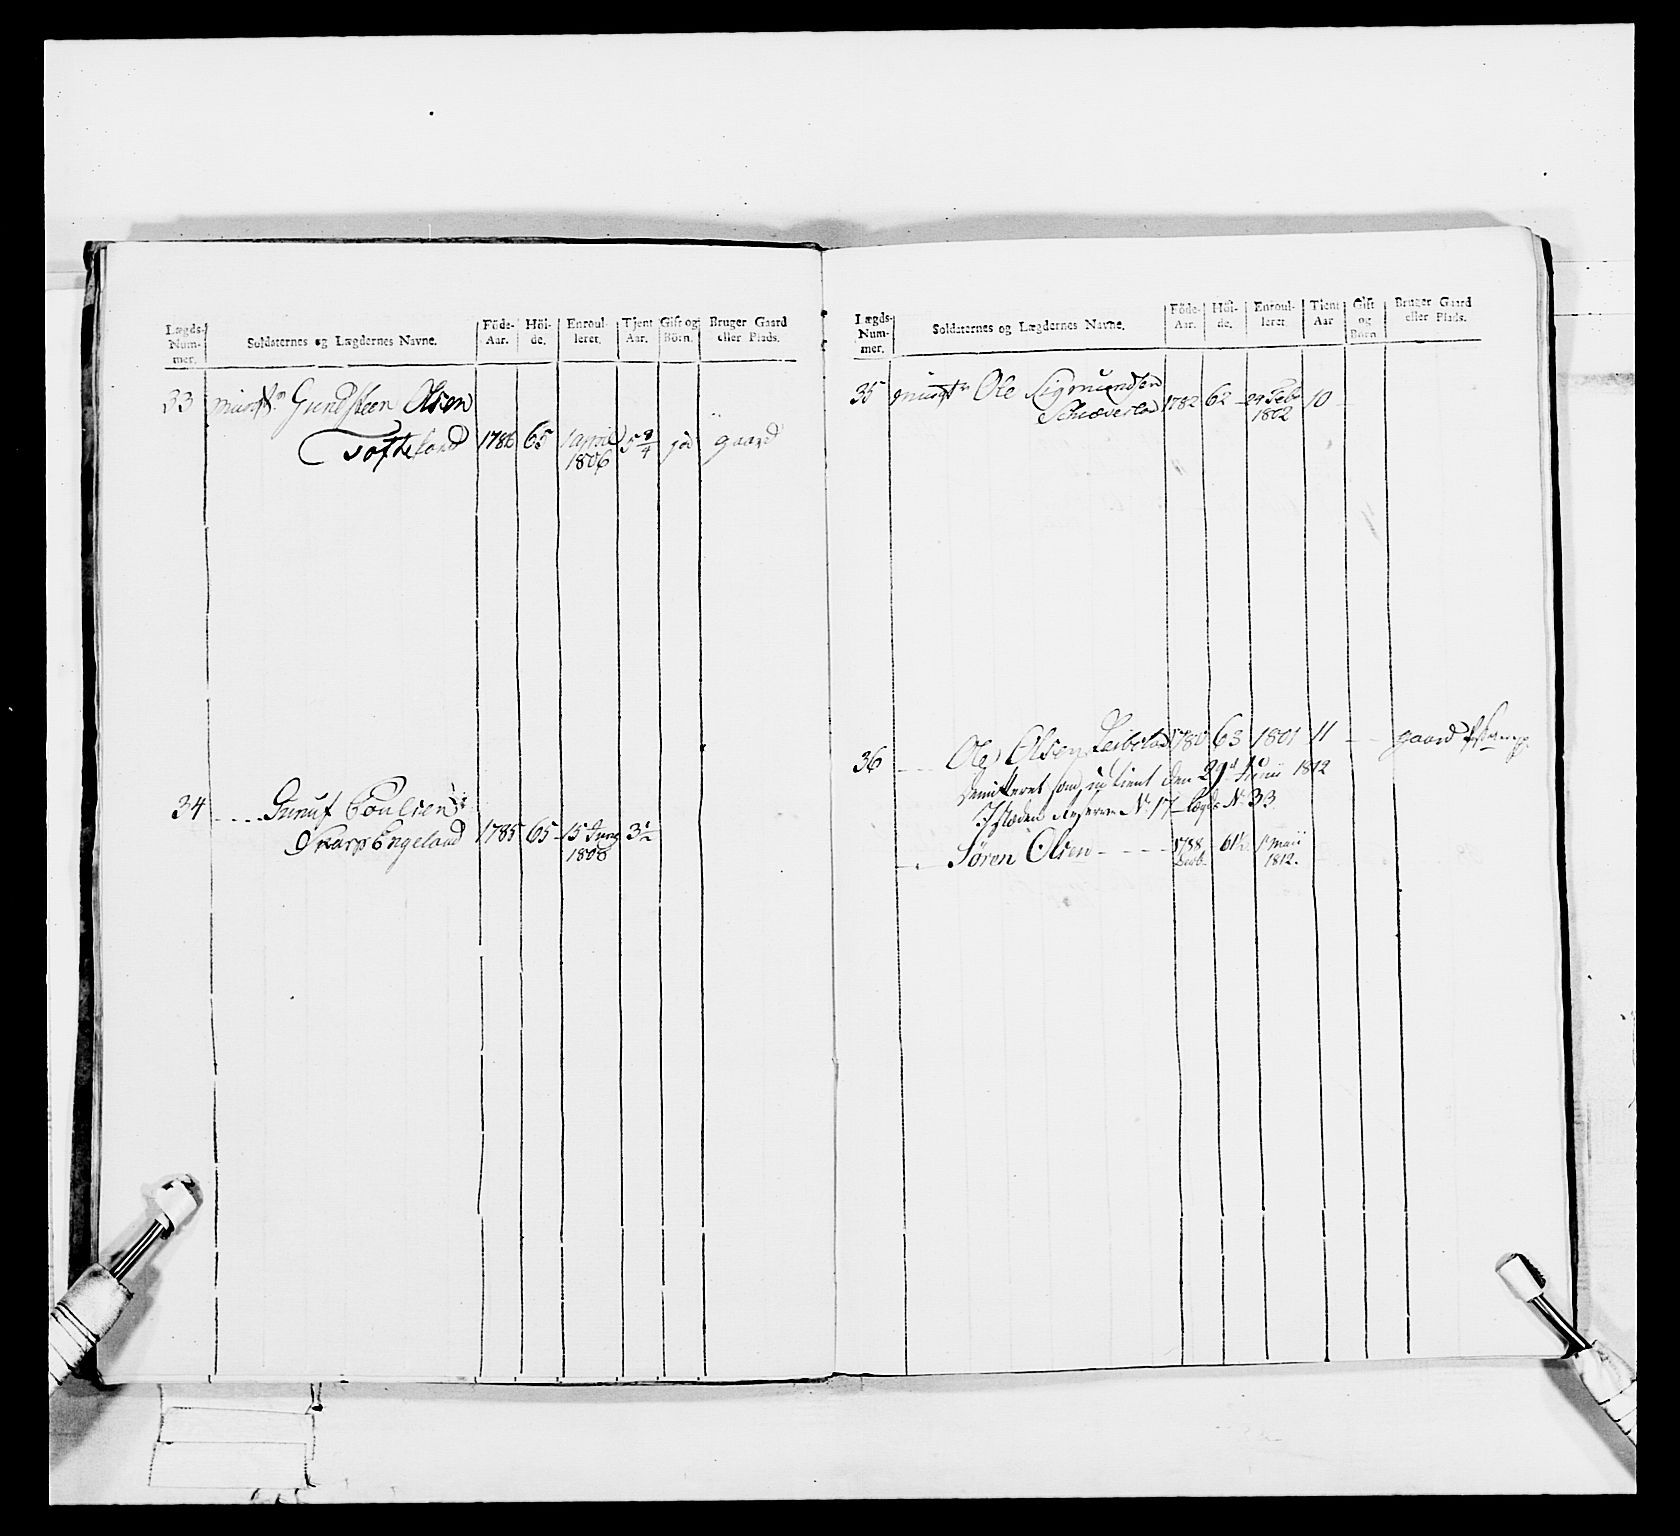 Lægds-Num-mer. Soldaternes og Lægdernes Navne. Föde-Aar. Höi-de. Enroul-leret. Tjent Aar. Gift og Börn. Bruger Gaard eller Plads.
33 Gundsteen Olsen
Tofteland 1786 65 1 april 1806 5 3/4 ja gaard
34 Gunuf Poulsen
Skarp Engeland 1785 65 15 Juny 1808 3 1/2
Lægds-Num-mer. Soldaternes og Lægdernes Navne. Föde-Aar. Höi-de. Enroul-leret. Tjent Aar Gift og Börn. Bruger Gaard eller Plads.
35 Ole Sigmundsen
1782 62 29 Feb 1802 10
36 Ole Olsen Leibstad 1780 63 1801 11 gaard
Demitteret den 29d Junii 1812
Isteden Reserve No 17 Lægd No 33
Søren Olsen 1788 61 1/2 1 Maii 1812.